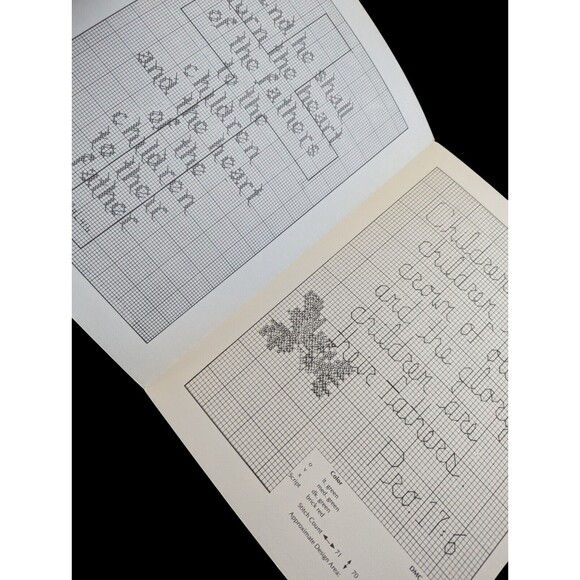 And he shall
turn the heart
of the fathers
to the
children
and the heart
of the
children
to their
father
Children
children
crown of ol
and the glory
children are
their fathers
Pro 17:6
Color
lt. green
med. green
dk. green
brick red
Script
Stitch Count 71 70
Approximate Design Area:
DMC